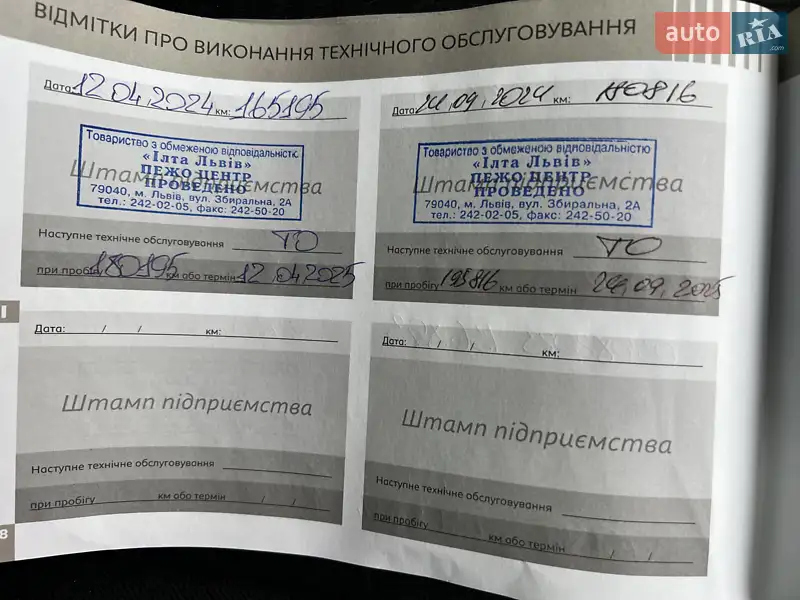 ВІДМІТКИ ПРО ВИКОНАННЯ ТЕХНІЧНОГО ОБСЛУГОВУВАННЯ
auto RIA.com
Дата: 12.04.2024 км: 165195
Товариство з обмеженою відповідальністю
«Ілта Львів»
ПЕЖО ЦЕНТР
ПРОВЕДЕНО
Штамп підприємства
79040, м. Львів, вул. Збиральна, 2А
тел.: 242-02-05, факс: 242-50-20
Наступне технічне обслуговування ТО
при пробігу 180195 км або термін 12.04.2025
Дата: 24.09.2024 км: 180816
Товариство з обмеженою відповідальністю
«Ілта Львів»
ПЕЖО ЦЕНТР
ПРОВЕДЕНО
Штамп підприємства
79040, м. Львів, вул. Збиральна, 2А
тел.: 242-02-05, факс: 242-50-20
Наступне технічне обслуговування ТО
при пробігу 195816 км або термін 24.09.2025
Дата: / / км:
Штамп підприємства
Наступне технічне обслуговування
при пробігу км або термін / /
Дата: / / км:
Штамп підприємства
Наступне технічне обслуговування
при пробігу км або термін / /
8